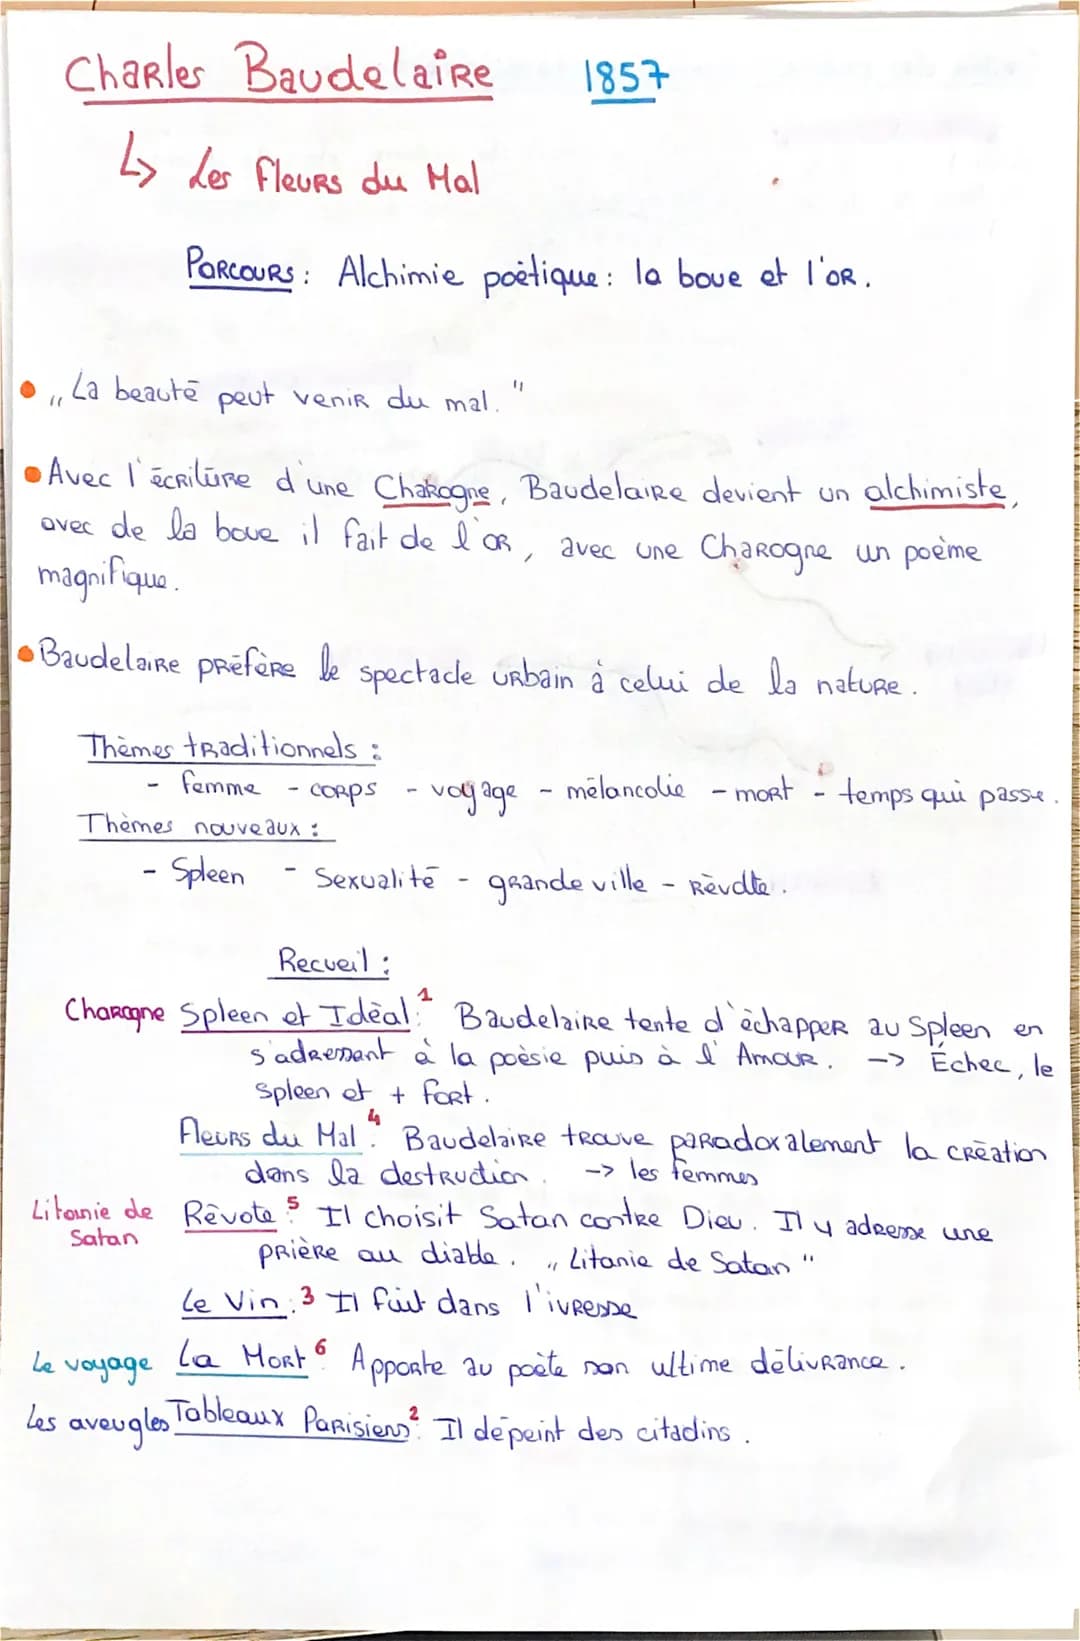 Charles Baudelaire 1857
↳ Les Fleurs du Mal
Parcours : Alchimie poètique : la boue et l'or.
• „ La beauté peut venir du mal. "
• Avec l'écriture d'une Charogne, Baudelaire devient un alchimiste,
avec de la boue il fait de l'or, avec une Charogne un poème
magnifique.
• Baudelaire préfère le spectacle urbain à celui de la nature.
Thèmes traditionnels :
- femme - corps - voyage - mélancolie - mort - temps qui passe.
Thèmes nouveaux :
- Spleen - Sexualité - grande ville - Rèvolte.
Recueil :
Charogne Spleen et Idèal :¹ Baudelaire tente d'èchapper au Spleen en
s'adressant à la poèsie puis à l'Amour. -> Échec, le
Spleen et + fort.
Fleurs du Mal :⁴ Baudelaire trouve paradoxalement la création
dans la destruction. -> les femmes
Litanie de Satan Rèvote :⁵ Il choisit Satan contre Dieu. Il y adresse une
prière au diable. „ Litanie de Satan "
Le Vin :³ Il fuit dans l'ivresse
Le voyage La Mort :⁶ Apporte au poète son ultime délivrance.
Les aveugles Tableaux Parisiens :² Il dépeint des citadins.